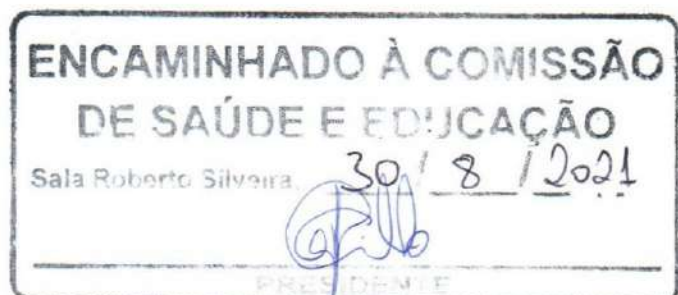 ENCAMINHADO À COMISSÃO
DE SAÚDE E EDUCAÇÃO
Sala Roberto Silveira, 30 / 8 / 2021
PRESIDENTE